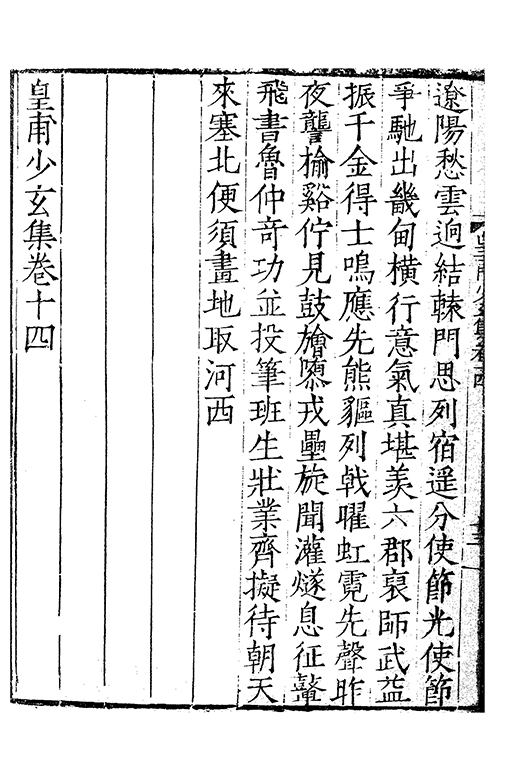 遼陽愁雲逈結棘門思列宿遥分使節光使節
爭馳出畿甸橫行意氣真堪羡六郡裒師武葢
振千金得士鳴應先熊貙列戟曜虹霓先聲昨
夜讋榆谿佇見鼓旝隳戎壘旋聞灌燧息征鼙
飛書魯仲奇功並投筆班生壯業齊擬待朝天
來塞北便須畫地取河西
皇甫少玄集卷十四